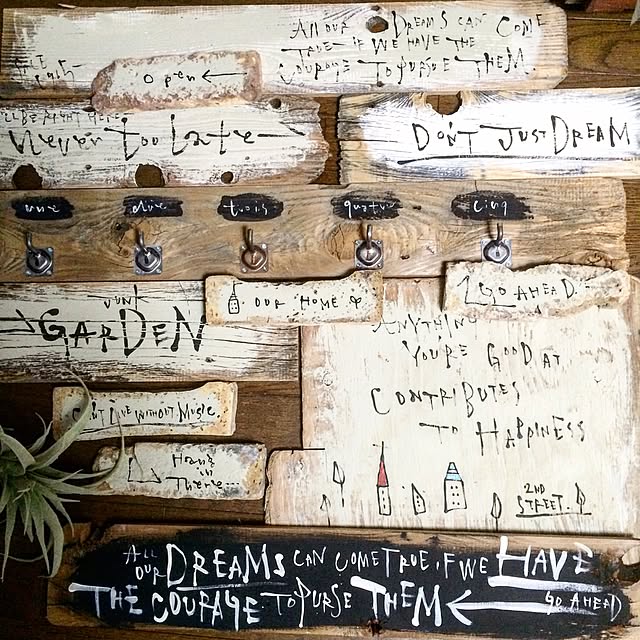 ALL OUR DREAMS CAN COME
TRUE IF WE HAVE THE
COURAGE TO PURSUE THEM
open ←
I'LL BE RIGHT HERE
Never too Late
DON'T JUST DREAM
une deux trois quatre cinq
OUR HOME
GO AHEAD
JUNK
GARDEN
ANYTHING
YOU'RE GOOD AT
CONTRIBUTES
TO HAPPINESS
CAN'T LIVE WITHOUT MUSIC
Hang
in
There...
2ND
STREET.
ALL
OUR DREAMS CAN COME TRUE, IF WE HAVE
THE COURAGE TO PURSE THEM ← GO AHEAD